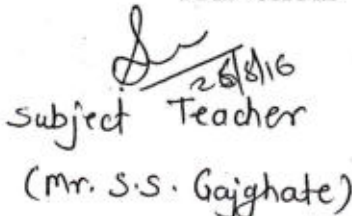 26/8/16
Subject Teacher
(Mr. S.S. Gajghate)